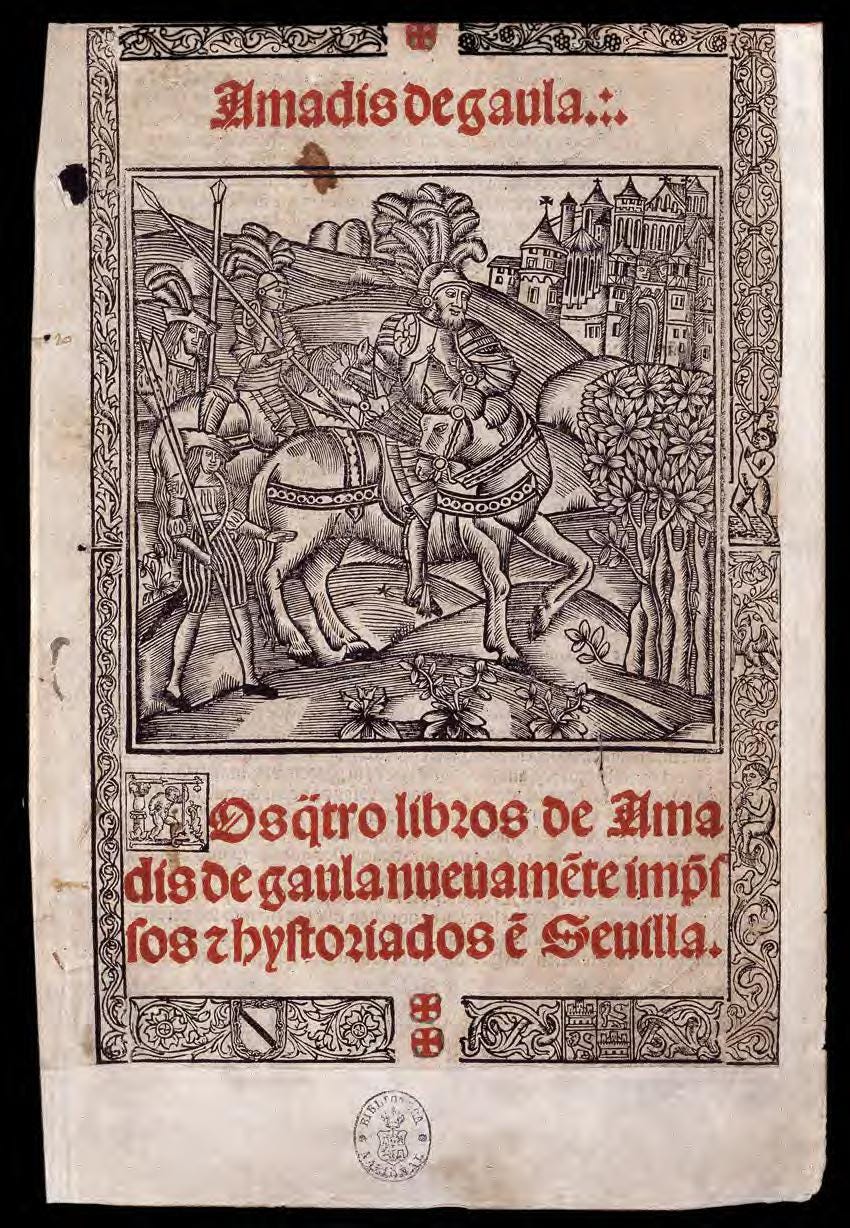 Amadis de gaula.:.
LOs q̃tro libros de Ama
dis de gaula nueuamẽte imp̃ſ
ſos ⁊ hyſtoriados ẽ Seuilla.
BIBLIOTECA NACIONAL